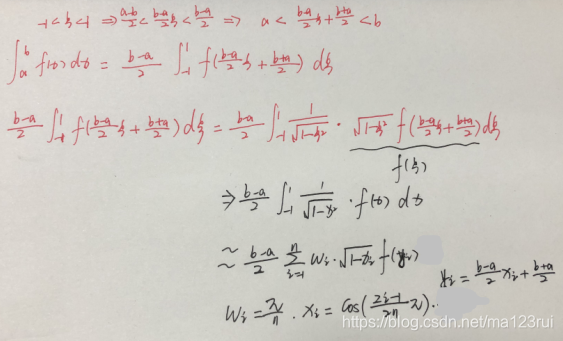 -1<ξ<1 ⇒ a-b/2 < b-a/2 ξ < b-a/2 ⇒ a < b-a/2 ξ + b+a/2 < b
∫_a^b f(x) dx = b-a/2 ∫_{-1}^1 f(b-a/2 ξ + b+a/2) dξ
b-a/2 ∫_{-1}^1 f(b-a/2 ξ + b+a/2) dξ = b-a/2 ∫_{-1}^1 1/√(1-ξ²) · √(1-ξ²) f(b-a/2 ξ + b+a/2) dξ
f(ξ)
⇒ b-a/2 ∫_{-1}^1 1/√(1-x²) · f(x) dx
≈ b-a/2 ∑_{i=1}^n w_i · √(1-x_i²) f(y_i)
y_i = b-a/2 x_i + b+a/2
w_i = π/n . x_i = cos(2i-1/2n π).
https://blog.csdn.net/ma123rui